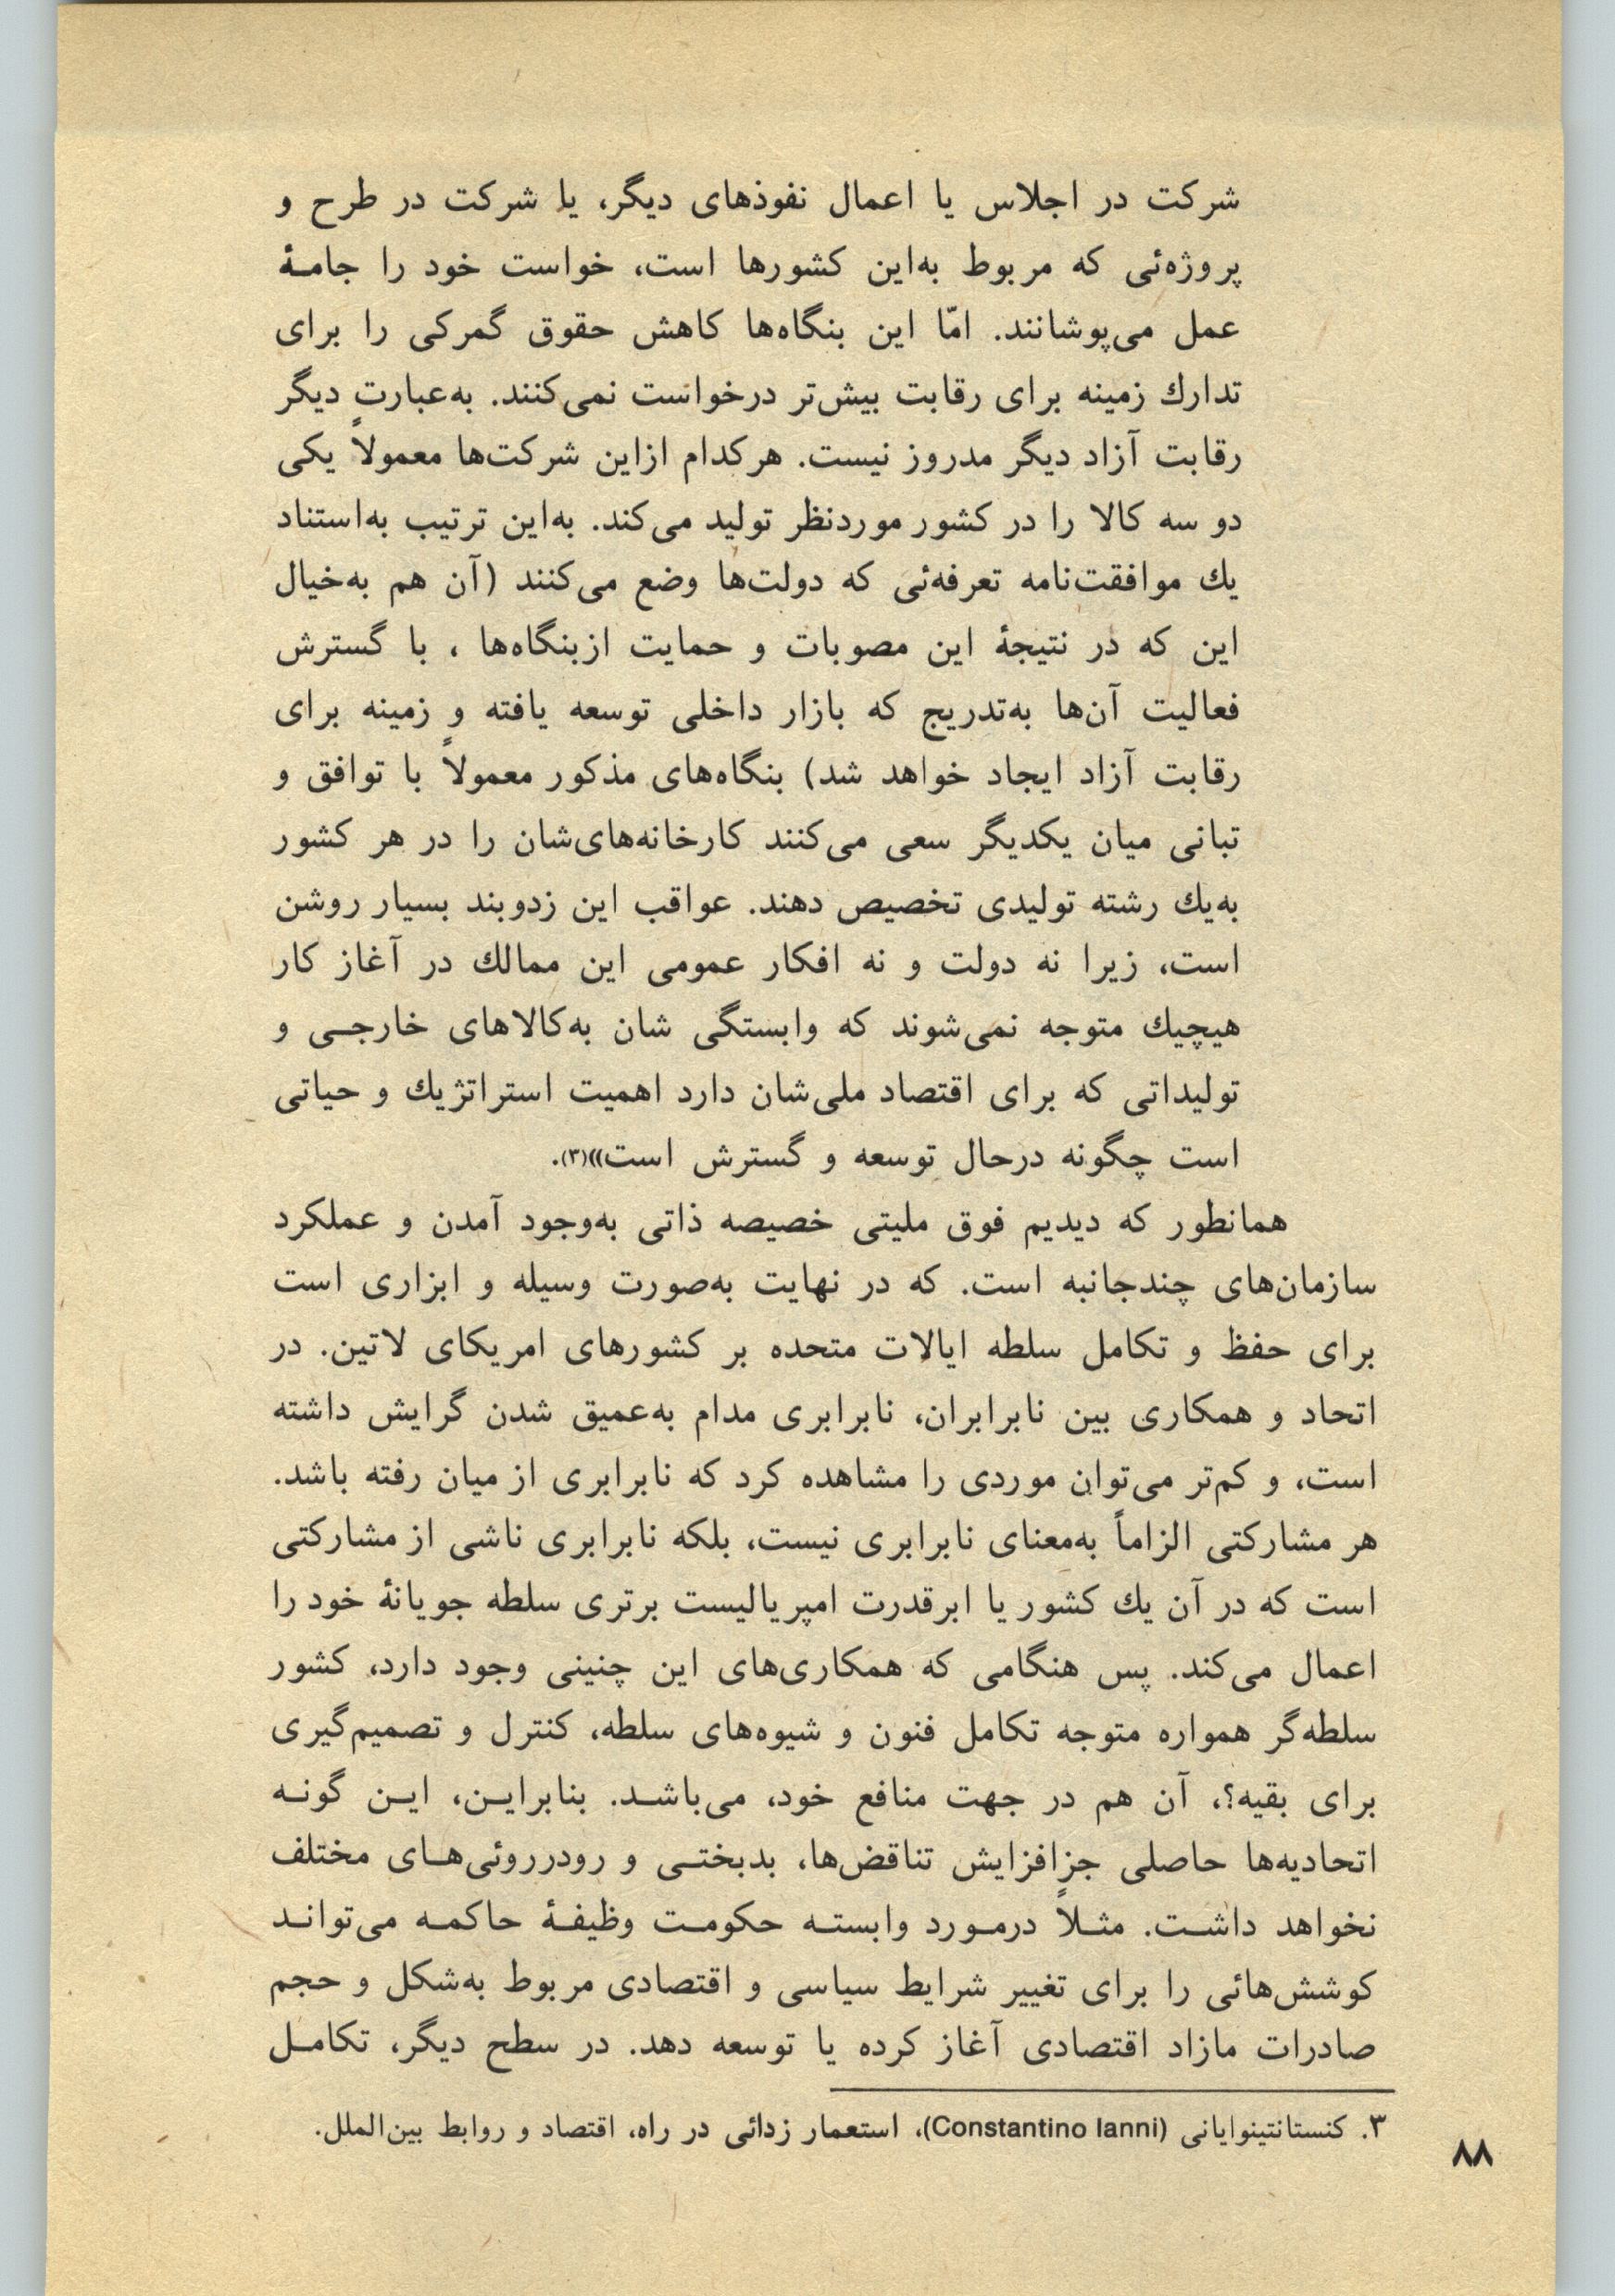 شرکت در اجلاس یا اعمال نفوذهای دیگر، یا شرکت در طرح و
پروژه‌ئی که مربوط به‌این کشورها است، خواست خود را جامـهٔ
عمل می‌پوشانند. امّا این بنگاه‌ها کاهش حقوق گمرکی را برای
تدارك زمینه برای رقابت بیش‌تر درخواست نمی‌کنند. به‌عبارتِ دیگر
رقابت آزاد دیگر مدروز نیست. هرکدام ازاین شرکت‌ها معمولاً یکی
دو سه کالا را در کشور موردنظر تولید می‌کند. به‌این ترتیب به‌استناد
یك موافقت‌نامه تعرفه‌ئی که دولت‌ها وضع می‌کنند (آن هم به‌خیال
این که در نتیجهٔ این مصوبات و حمایت ازبنگاه‌ها ، با گسترش
فعالیت آن‌ها به‌تدریج که بازار داخلی توسعه یافته و زمینه برای
رقابت آزاد ایجاد خواهد شد) بنگاه‌های مذکور معمولاً با توافق و
تبانی میان یکدیگر سعی می‌کنند کارخانه‌های‌شان را در هر کشور
به‌یك رشته تولیدی تخصیص دهند. عواقب این زدوبند بسیار روشن
است، زیرا نه دولت و نه افکار عمومی این ممالك در آغاز کار
هیچیك متوجه نمی‌شوند که وابستگی شان به‌کالاهای خارجـی و
تولیداتی که برای اقتصاد ملی‌شان دارد اهمیت استراتژیك و حیاتی
است چگونه درحال توسعه و گسترش است»(۳).
همانطور که دیدیم فوق ملیتی خصیصه ذاتی به‌وجود آمدن و عملکرد
سازمان‌های چندجانبه است. که در نهایت به‌صورت وسیله و ابزاری است
برای حفظ و تکامل سلطه ایالات متحده بر کشورهای امریکای لاتین. در
اتحاد و همکاری بین نابرابران، نابرابری مدام به‌عمیق شدن گرایش داشته
است، و کم‌تر می‌توان موردی را مشاهده کرد که نابرابری از میان رفته باشد.
هر مشارکتی الزاماً به‌معنای نابرابری نیست، بلکه نابرابری ناشی از مشارکتی
است که در آن یك کشور یا ابرقدرت امپریالیست برتری سلطه جویانهٔ خود را
اعمال می‌کند. پس هنگامی که همکاری‌های این چنینی وجود دارد، کشور
سلطه‌گر همواره متوجه تکامل فنون و شیوه‌های سلطه، کنترل و تصمیم‌گیری
برای بقیه؟، آن هم در جهت منافع خود، می‌باشـد. بنابرایـن، ایـن گونـه
اتحادیه‌ها حاصلی جزافزایش تناقض‌ها، بدبختـی و رودرروئی‌هـای مختلف
نخواهد داشـت. مثـلاً درمـورد وابستـه حکومـت وظیفـهٔ حاکمـه می‌توانـد
کوشش‌هائی را برای تغییر شرایط سیاسی و اقتصادی مربوط به‌شکل و حجم
صادرات مازاد اقتصادی آغاز کرده یا توسعه دهد. در سطح دیگر، تکامـل
۳. کنستانتینوایانی (Constantino Ianni)، استعمار زدائی در راه، اقتصاد و روابط بین‌الملل.
۸۸